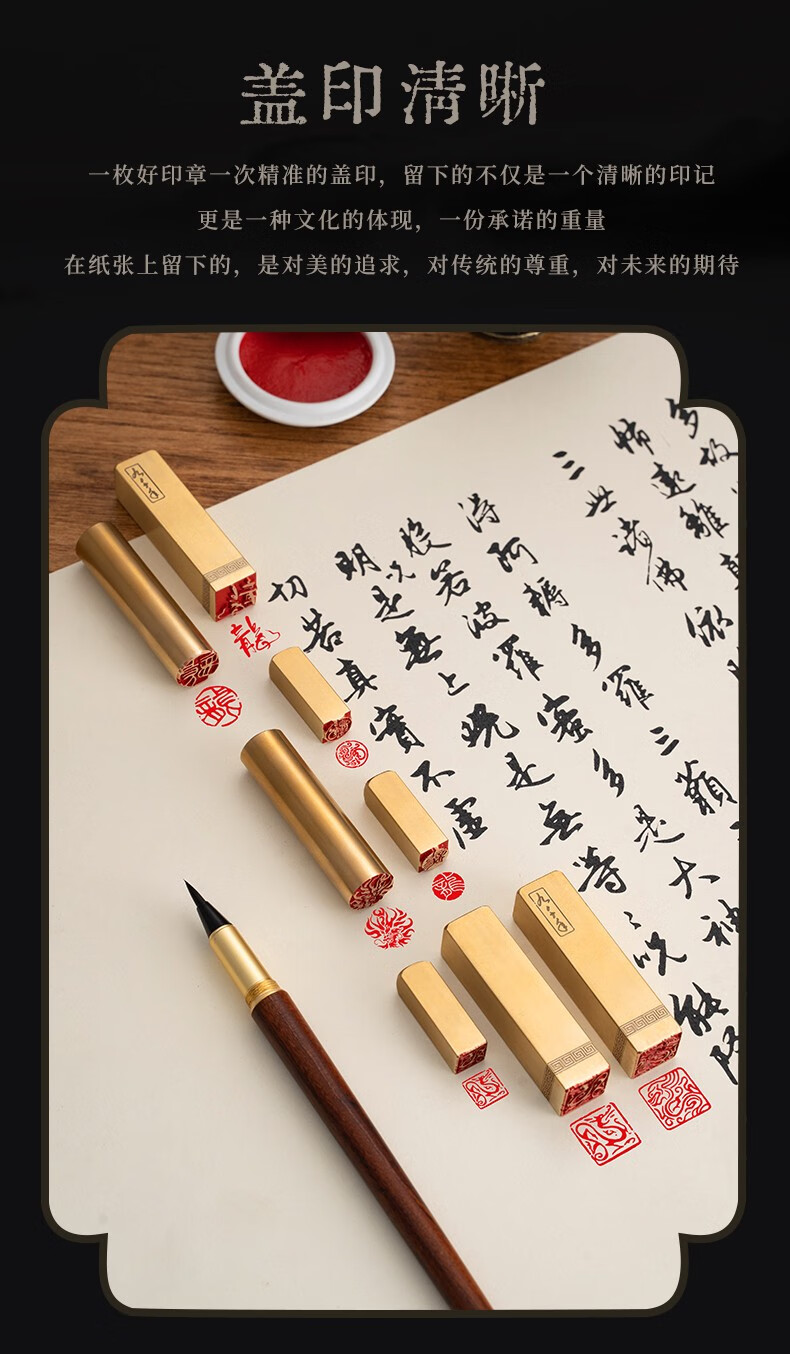 盖印清晰
一枚好印章一次精准的盖印，留下的不仅是一个清晰的印记
更是一种文化的体现，一份承诺的重量
在纸张上留下的，是对美的追求，对传统的尊重，对未来的期待
多故
怖遠離
三世諸佛依
得阿耨多羅三藐
般若波羅蜜多是大神
明咒是無上咒是無等々咒能除
切苦真實不虛
龍